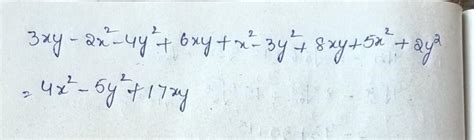 3xy - 2x² - 4y² + 6xy + x² - 3y² + 8xy + 5x² + 2y²
= 4x² - 5y² + 17xy